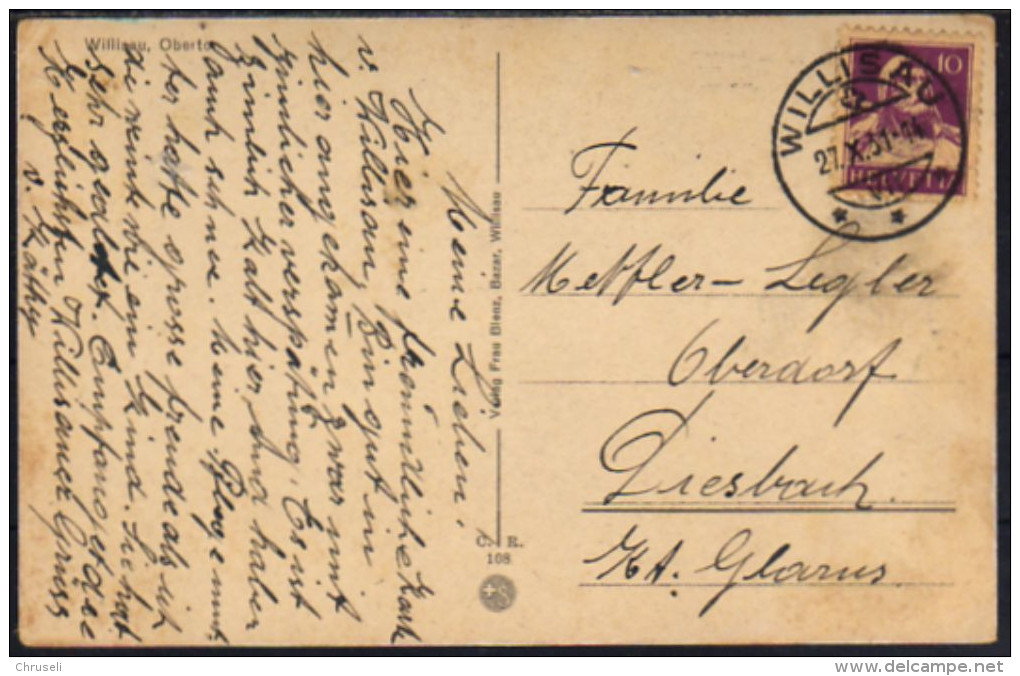 Willisau, Oberto
Meine Lieben.
Hier eine freundliche Karte
v. Willisau, Bin gut in
hier angekomen zwar mit
ziemlicher verspätung. Es ist
zimlich kalt hier und haben
auch schnee. Meine Pflegemut-
ter hatte grosse freude als ich
kam wie ein Kind. Sie hat
sehr Empfanget die
Herzlichsten Willisauer Grüss
v. Käthy
Verlag Frau Blenz, Bazar, Willisau
C. R.
108
WILLISAU
27.X.31
10
HELVETIA
Familie
Mettler-Legler
Oberdorf
Diesbach.
Kt. Glarus.
Chruseli
delcampe.net